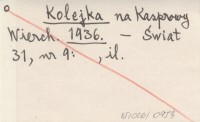 Kolejka na Kasprowy
Wierch. 1936. — Świat
31, nr 9: , il.